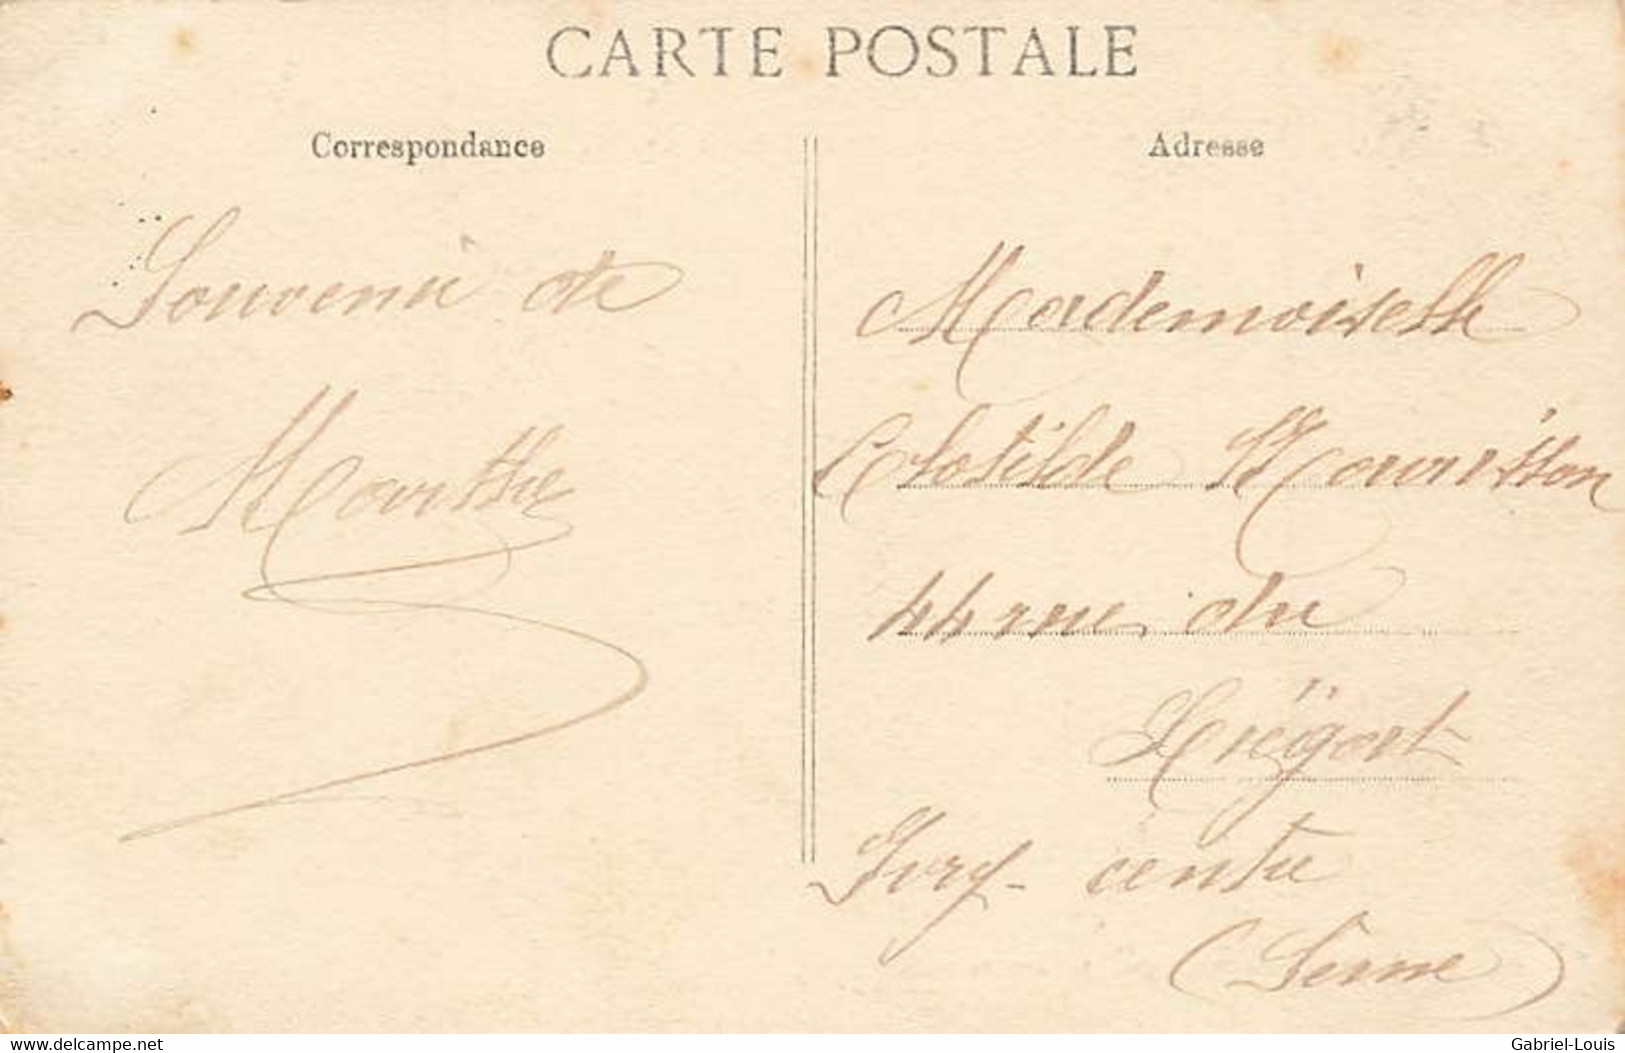 CARTE POSTALE
Correspondance
Souvenir de
Marthe
Adresse
Mademoiselle
Clotilde
44 rue du
Liégat
Ivry-centre
(Seine)
www.delcampe.net
Gabriel-Louis